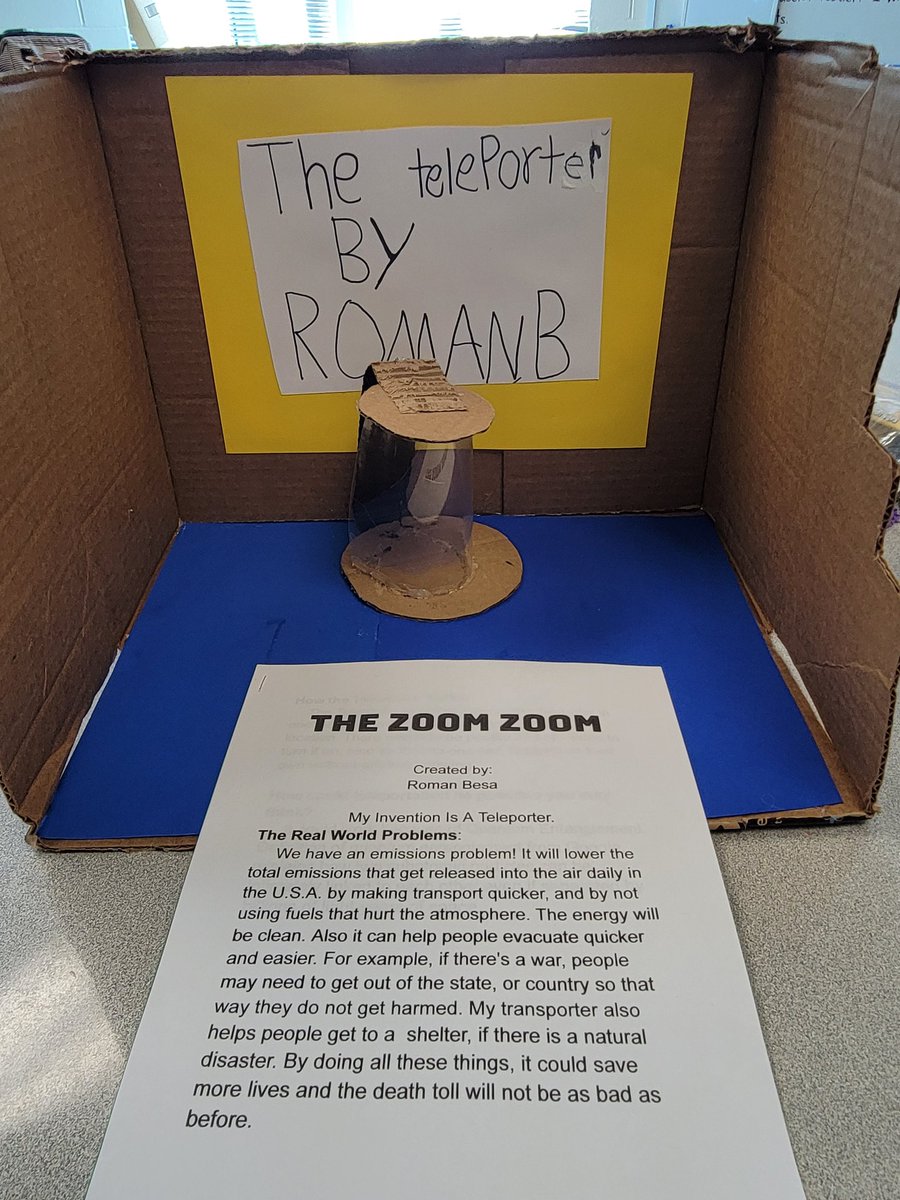 The telePorter
BY
ROMAN B
THE ZOOM ZOOM
Created by:
Roman Besa
My Invention Is A Teleporter.
The Real World Problems:
We have an emissions problem! It will lower the
total emissions that get released into the air daily in
the U.S.A. by making transport quicker, and by not
using fuels that hurt the atmosphere. The energy will
be clean. Also it can help people evacuate quicker
and easier. For example, if there's a war, people
may need to get out of the state, or country so that
way they do not get harmed. My transporter also
helps people get to a shelter, if there is a natural
disaster. By doing all these things, it could save
more lives and the death toll will not be as bad as
before.